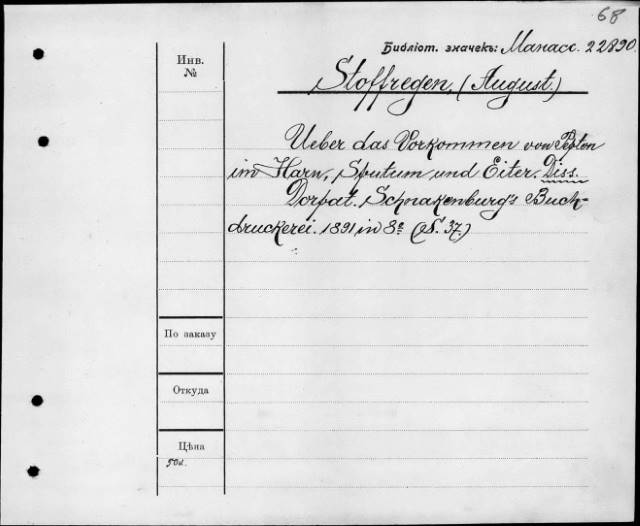 68
Библіот. значекъ: Манасс. 22890.
Инв.
№
Stoffregen, (August.)
Ueber das Vorkommen von Pepton
im Harn, Sputum und Eiter. Diss.
Dorpat. Schnakenburg's Buch-
druckerei. 1891 in 8º (S. 37.)
По заказу
Откуда
Цѣна
50к.